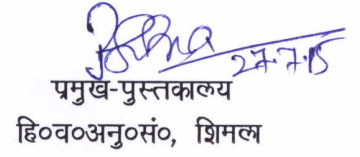 27.7.15
प्रमुख-पुस्तकालय
हि०व०अनु०सं०, शिमला